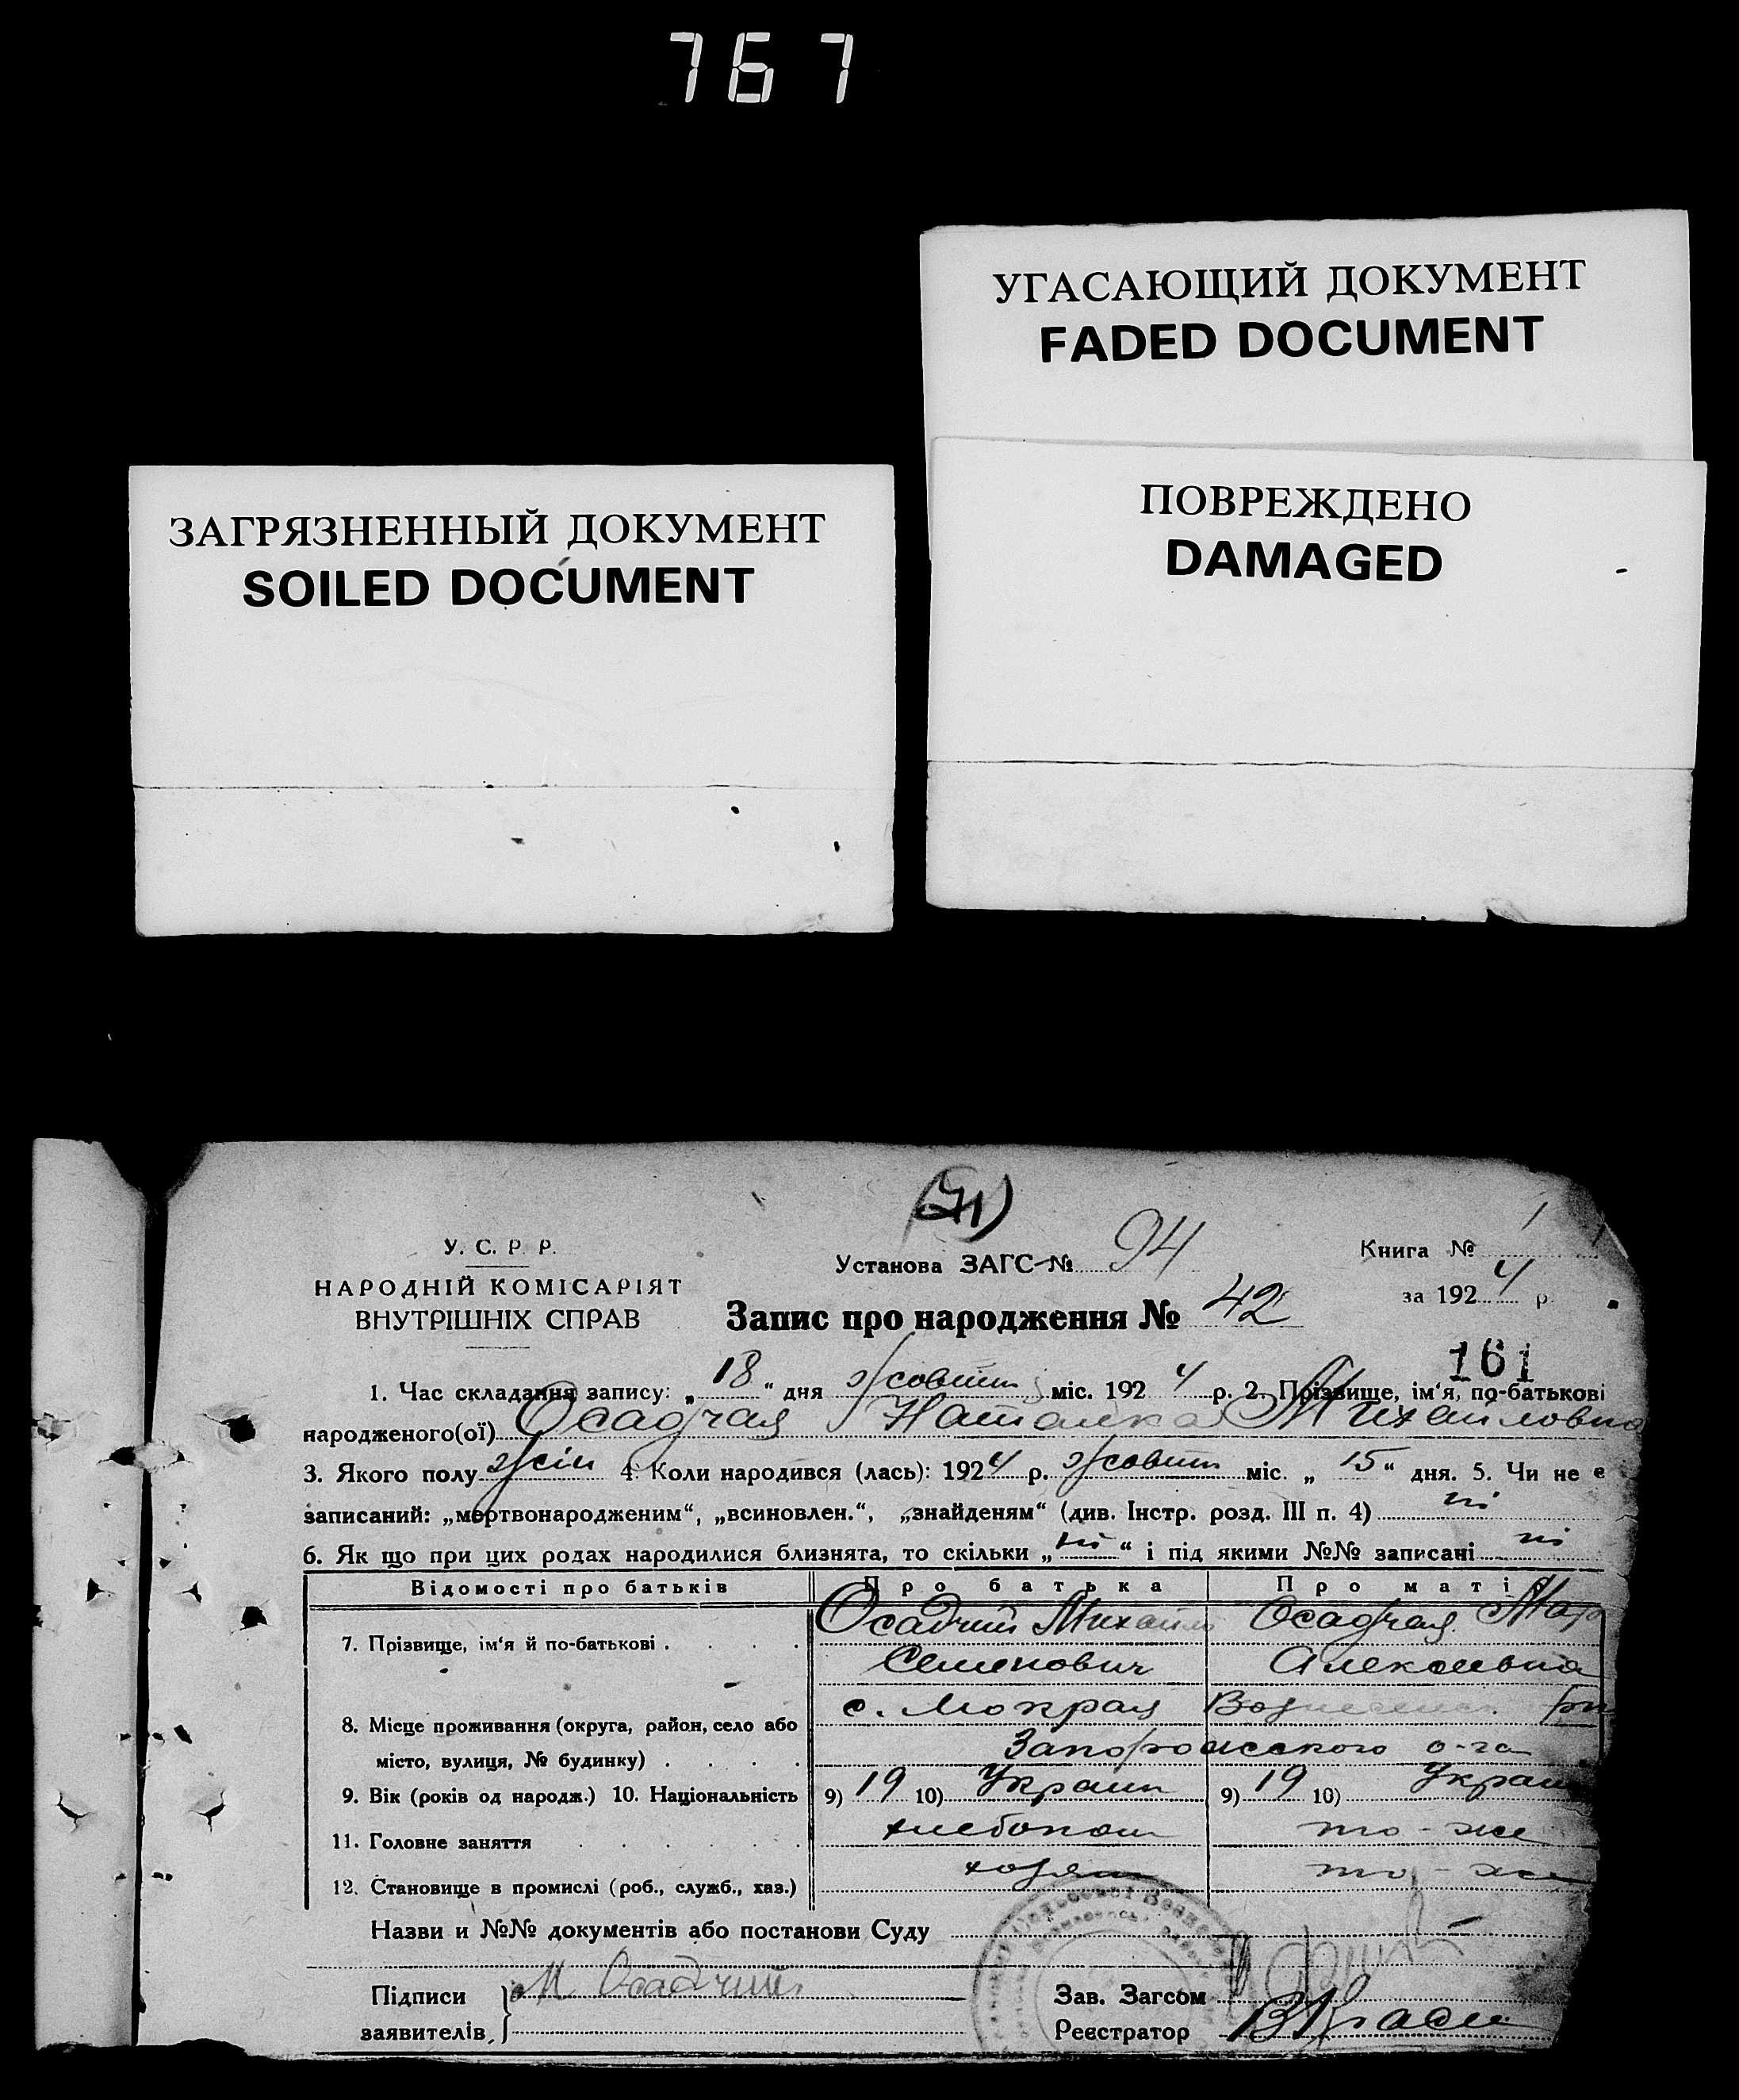 767
УГАСАЮЩИЙ ДОКУМЕНТ
FADED DOCUMENT
ЗАГРЯЗНЕННЫЙ ДОКУМЕНТ
SOILED DOCUMENT
ПОВРЕЖДЕНО
DAMAGED
У. С. Р. Р.
НАРОДНІЙ КОМІСАРІЯТ
ВНУТРІШНІХ СПРАВ
Установа ЗАГС № 94
Книга №
за 1924 р.
Запис про народження № 42
161
1. Час складання запису: „18“ дня жовтн міс. 1924 р. 2. Прізвище, ім‘я, по-батькові
народженого(ої) Осадчая Наталка Михайловна
3. Якого полу жін 4. Коли народився (лась): 1924 р. жовтн міс. „15“ дня. 5. Чи не є
записаний: „мертвонародженим“, „всиновлен.“, „знайденям“ (див. Інстр. розд. III п. 4) ні
6. Як що при цих родах народилися близнята, то скільки „ні“ і під якими №№ записані ні
Відомості про батьків Про батька Про маті
7. Прізвище, ім‘я й по-батькові . . . . Осадчий Михайло Осадчая Мар
Семенович Алексеевна
8. Місце проживання (округа, район, село або с. Мокрая
місто, вулиця, № будинку) . . . . Запорожского о-га
9. Вік (років од народж.) 10. Національність 9) 19 10) Украин 9) 19 10) Украин
11. Головне заняття . . . . . хлебопаш то-же
12. Становище в промислі (роб., служб., хаз.) хозяин то-же
Назви и №№ документів або постанови Суду
Підписи М Осадчий
Зав. Загсом
заявителів
Реєстратор